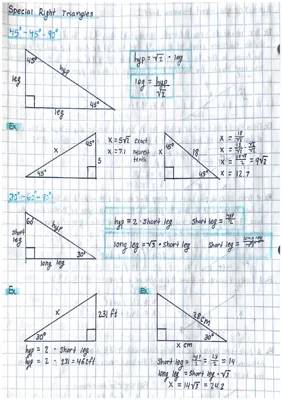 Special Right Triangles
45° - 45° - 90°
45°
hyp
leg
45°
leg
hyp = √2 · leg
leg = hyp/√2
Ex
45°
x
5
45°
x = 5√2 Exact
x = 7.1 Nearest tenth
45°
x
18
45°
x
x = 18/√2
x = 18/√2 · √2/√2
x = 18√2/2 = 9√2
x = 12.7
30° - 60° - 90°
60
hyp
short leg
30°
long leg
hyp = 2 · short leg
short leg = hyp/2
long leg = √3 · short leg
short leg =
Ex
x
231 ft
30°
hyp = 2 · short leg
hyp = 2 · 231 = 462 ft
Ex
28 cm
30°
x cm
Short leg = hyp/2 = 28/2 = 14
long leg = short leg · √3
x = 14√3 = 24.2